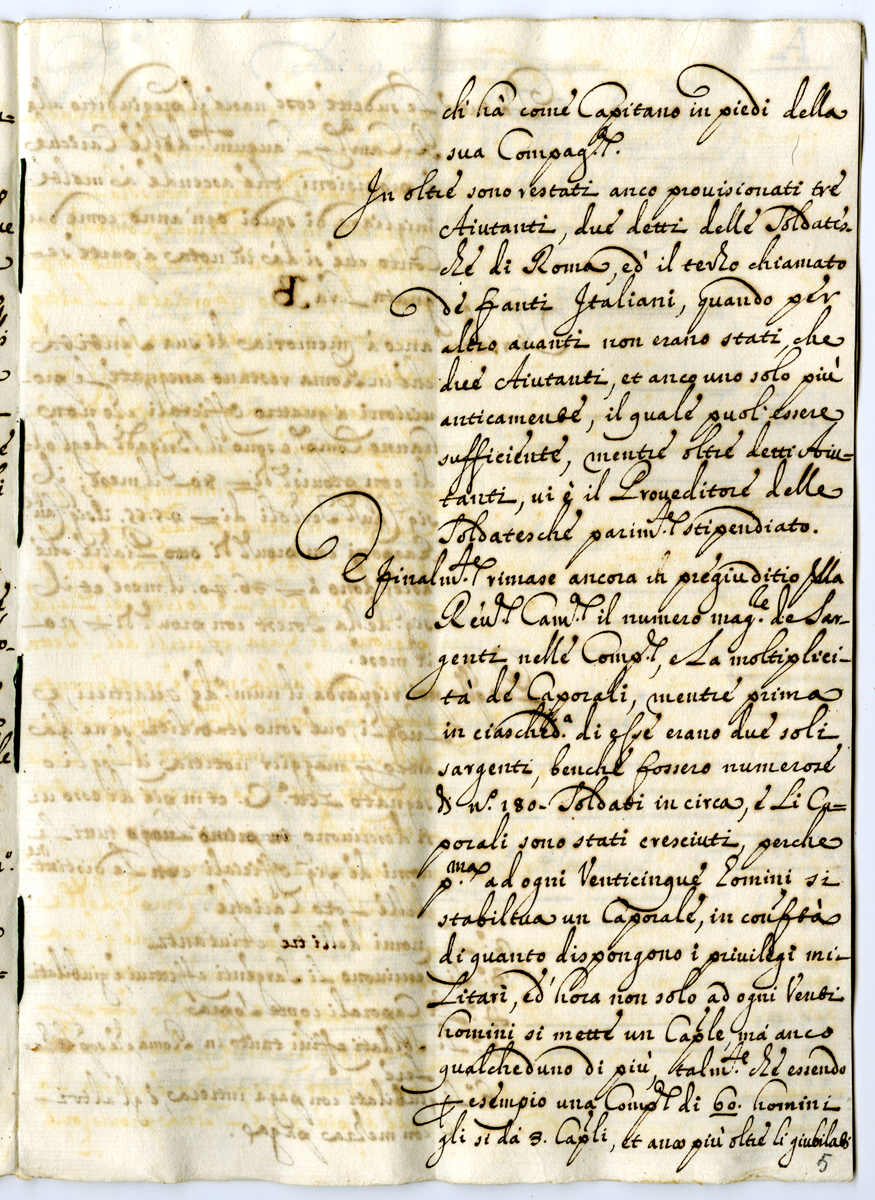 ch hà come Capitano in piedi della
sua Compag.ª
In oltre sono restati anco provisionati tre
Aiutanti, due detti delle Soldates-
che di Roma, ed il terzo chiamato
de fanti Italiani, quando per
altro avanti non erano stati, che
due Aiutanti, et anco uno solo più
anticamente, il quale puol essere
sufficiente, mentre oltre detti Aiu=
tanti, vi è il Proveditore delle
Soldatesche parim.te stipendiato.
E finalm.te rimase ancora in pregiuditio della
Rev.ª Cam.ª il numero mag.re de Sar-
genti nelle Comp.e, e La moltiplici-
tà de Caporali, mentre prima
in ciasched.ª di esse erano due soli
sargenti, benche fossero numerose
di n.º 180. Soldati in circa, e Li Ca=
porali sono stati cresciuti, perche
p.ma ad ogni Venticinque homini si
stabiliva un Caporale, in
di quanto dispongono i privilegi mi-
Litari, ed hora non solo ad ogni Venti
homini si mette un Cap̃le, ma anco
qualcheduno di più, talm.te che essendo
esempio una Comp.ª di 60. homini
gli si dà 3. Cap̃li, et anco più oltre li giubilati
5